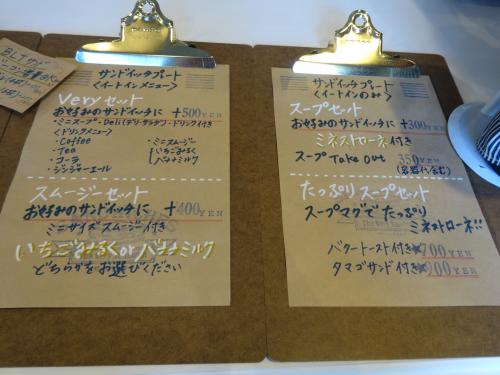 BLTサンド
サンドイッチプレート
＜イートインメニュー＞
Veryセット
お好みのサンドイッチに +500YEN
・ミニスープ・Deli(デリ・サラダ)・ドリンク付き
＜ドリンクメニュー＞
・Coffee
・Tea
・コーラ
・ジンジャーエール
・ミニスムージー
いちごみるく
バナナミルク
スムージーセット
お好みのサンドイッチに +400YEN
ミニサイズスムージー付き
いちごみるくorバナナミルク
どちらかをお選びください
サンドイッチプレート
＜イートインのみ＞
スープセット
お好みのサンドイッチに +300YEN
ミネストローネ付き
スープTake Out 350YEN
(容器代含む)
たっぷりスープセット
スープマグでたっぷり
ミネストローネ!!
バタートースト付き 700YEN
タマゴサンド付き 900YEN